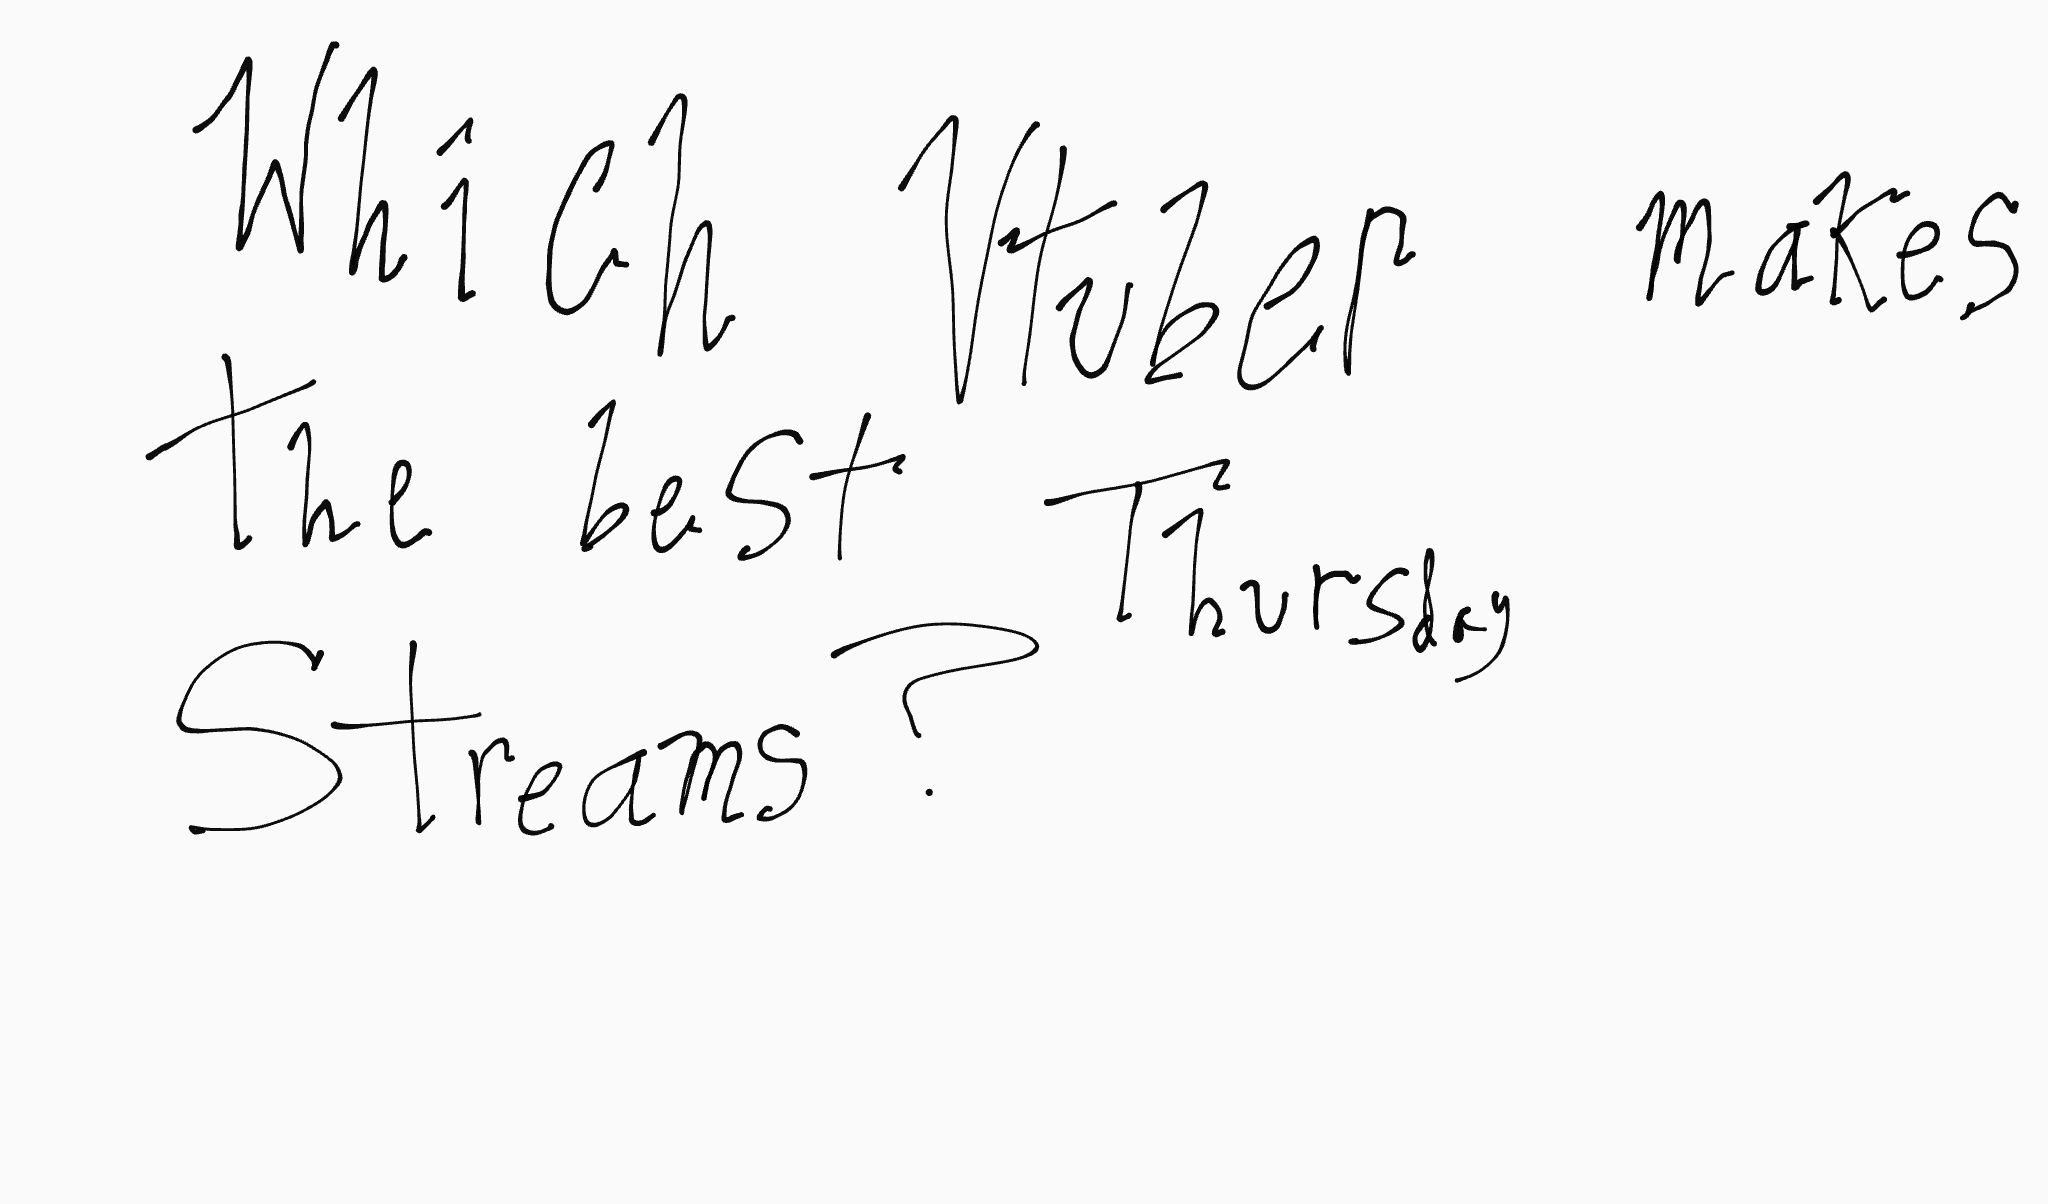 Which Vtuber makes
the best Thursday
Streams?